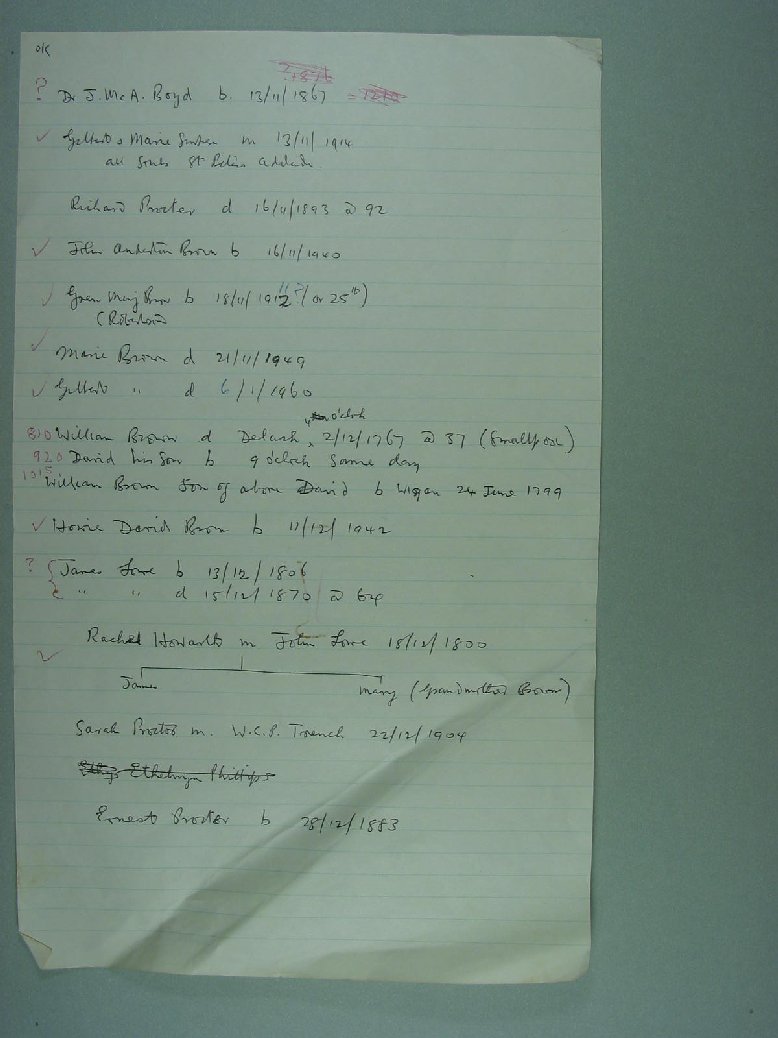 OK
? Dr J. McA. Boyd b. 13/11/1867 =
✓ Gilbert & Marie m 13/11/1914
all St Adelaide
Richard Procter d 16/11/1893 @ 92
✓ John Anderton Brown b 16/11/1940
✓ Gwen Mary Brown b 18/11/1912 ? (or 25th)
(Robertson
✓ Marie Brown d 21/11/1949
✓ Gilbert " d 6/1/1960
o'clock
810 William Brown d 2/12/1767 @ 37 (Smallpox)
920 David his son b 9 o'clock same day
1015 William Brown son of above David b Wigan 24 June 1799
✓ Howie David Brown b 11/12/1942
? { James Lowe b 13/12/1806
" " d 15/12/1870 @ 64
✓ Rachel Howarth m John Lowe 18/12/1800
James Mary (Grandmother Brown)
Sarah Procter m. W.C.P. Trench 22/12/1904
Ethelwyn Phillips
Ernest Procter b 28/12/1883